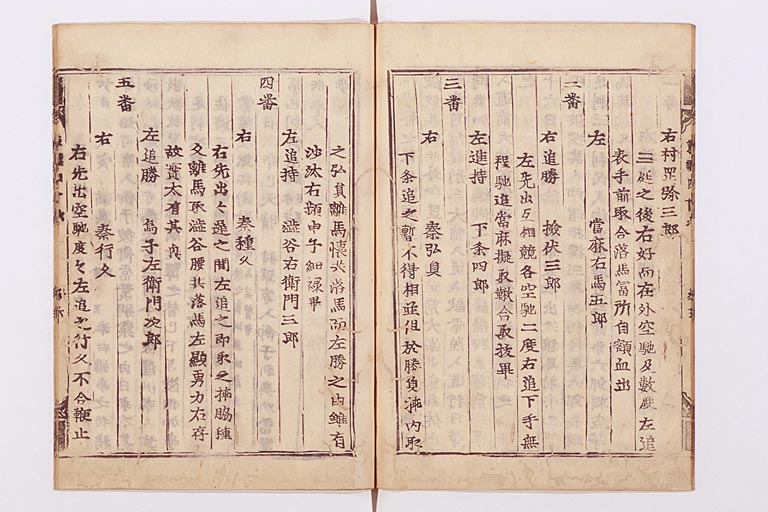 右村男除三郎
三遅之後右好而在外空馳及数度左追
表手前取合落馬冨所自額血出
二番
左 當麻右馬五郎
右追勝 捡伏三郎
左先出互相競各空馳二度右追下手無
程馳追當麻擬取轍合取技畢
三番
左進持 下条四郎
右 秦弘負
下条追之暫不得相並但於勝負 内取
之弘負離馬懐共落馬而左勝之由雖有
沙汰右頻申子細禄畢
四番
左追持 澁谷右衛門三郎
右 秦種久
右先出々遅之間左追之即取之挿脇種
久離馬取澁谷腰共落馬左顕勇力右存
故實太有其
左追勝 子左衛門次郎
五番
右 秦行久
右先出空馳度々左追之行久不合鞭止